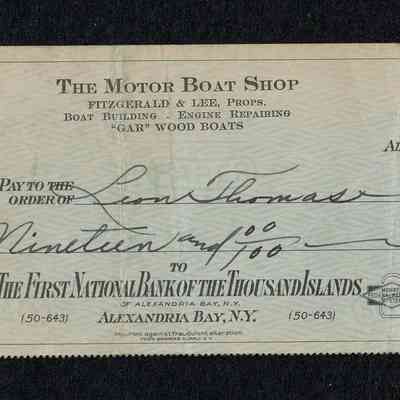 THE MOTOR BOAT SHOP
FITZGERALD & LEE, PROPS.
BOAT BUILDING - ENGINE REPAIRING
"GAR" WOOD BOATS
AL
PAY TO THE
ORDER OF Leon Thomas
Nineteen and 00/100
TO
THE FIRST NATIONAL BANK OF THE THOUSAND ISLANDS
OF ALEXANDRIA BAY, N.Y.
(50-643) ALEXANDRIA BAY, N.Y. (50-643)
INSURED against fraudulent alteration